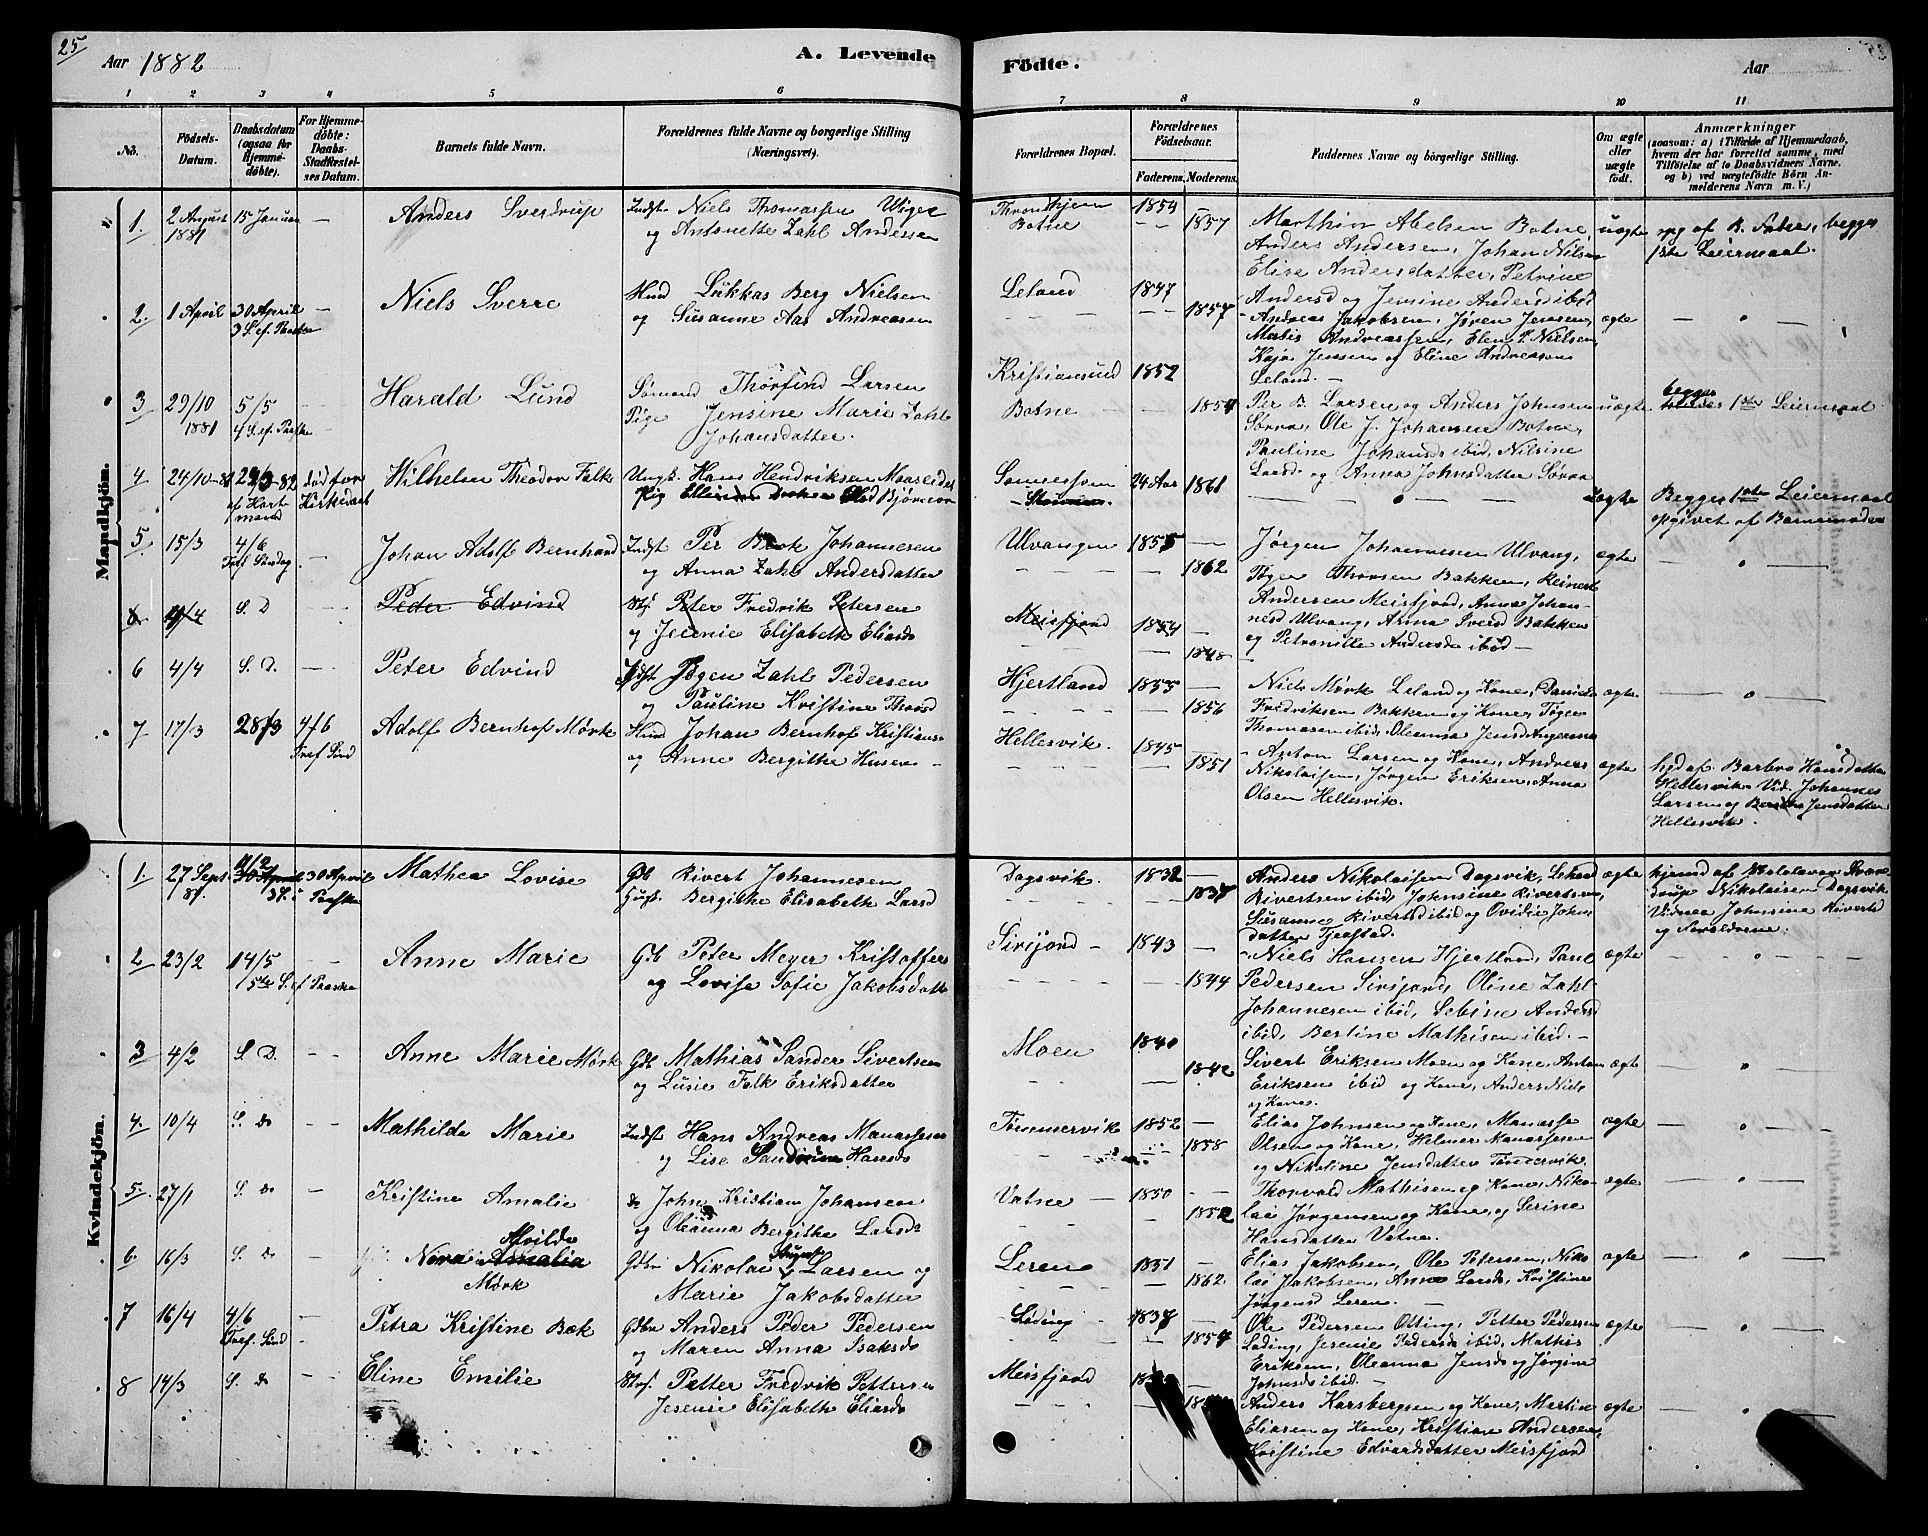 25
Aar 1882
A. Levende
Födte.
Aar
1 2 3 4 5 6 7 8 9 10 11
No.
Födsels-Datum.
Daabsdatum (ogsaa for Hjemmedöbte).
For Hjemmedöbte: Daabs-Stadfæstelses Datum.
Barnets fulde Navn.
Forældrenes fulde Navne og borgerlige Stilling (Næringsvei).
Forældrenes Bopæl.
Forældrenes Fødselsaar.
Faderens. Moderens.
Faddernes Navne og börgerlige Stilling.
Om ægte eller uægte født.
Anmærkninger
(saasom: a) i Tilfælde af Hjemmedaab,
hvem der har forrettet samme, med
Tilföielse af to Daabsvidners Navne,
og b) ved uægtefödte Börn Anmelderens Navn m. V.)
Mandkjön.
1. 2 August 1881 15 Januar — Anders Sverdrup Indst Niels Thomassen Wigee Thronhjem 1854 —
og Antonette Zahl Andersen Botne — — 1857
Marthin Abelsen Botne,
Anders Andersen, Johan Nilsen
Elise Andersdatter, Petrine
Andersd og Jensine Andersd ibid
uægte opg af B. Fader, begges
1ste Leiermaal.
2. 1 April 30 April 3 S. ef. Paaske — Niels Sverre Hmd Lukkas Berg Nielsen Leland 1847
og Susanne Aas Andreassen — — — 1857
Andreas Jakobsen, Jören Jensen,
Matis Andreassen, Elen P. Nielsen,
Kaja Jensen og Eline Andreasen
Leland. —
ægte — " —
3 29/10 1881 5/5 4 S. ef. Paaske — Harald Lund Sømand Thorfind Larsen Kristiansund 1852
Pige Jensine Marie Zahl Botne — — 1854
Johansdatter.
Per B. Larsen og Anders Johnsen
Sørra, Ole J. Johansen Botne,
Pauline Johansd ibid, Nilsine
Larsd. og Anna Johnsdatter Sørra
uægte begges 1ste Leiermaal.
4 24/10-81 Død før Kirkedaab Wilhelm Theodor Falk Ungk. Hans Hendriksen Maaseidet 24 Aar 1861
Bjørnson
uægte Begges 1ste Leiermaal
opgivet af Barnemoderen
5. 15/3 4/6 Tref Søndag. — Johan Adolf Bernhard Indst Per Johannesen Ulvangen 1855 —
og Anna Zahl Andersdatter — — — 1862
Jørgen Johannesen Ulvang,
Tøger Thorsen Bakken, Reinert
Andersen Meisfjord, Anna Johannesd
Ulvang, Anna Svensd Bakken
og Petronille Andersd ibid —
ægte — " —
4/4 S. D — Peder Edvind Peter Fredrik Petersen Meisfjord 1854 —
og Jesenie Elisabeth Eliasd — 1848
6 4/4 S. D. — Peter Edvind Indst Jøgen Zahl Pedersen Hjertland 1855 —
og Pauline Kristine Thorsd — 1856
Niels Mørk Leland og Kone, Daniel
Fredriksen Bakken og Kone, Tøger
Thomasen ibid, Oleanna Jensd
ægte — " —
7 17/3 28/3 4/6 Tref Sønd Adolf Bernhof Mørk Hmd Johan Bernhof Kristians- Hellesvik. 1845 —
og Anne Bergithe — 1851
Anton Larsen og Kone, Andreas
Nikolaisen, Jørgen Eriksen, Anna
Olsen Hellesvik.
ægte hjd af. Barbro Hansdatter
Hellesvik Vid. Johannes
Larsen og Jensdatter
Hellesvik.
Kvindekjön.
1. 27 Sept. 81. 30 April 3 S. Paaske Mathea Lovise Gdb Rivert Johannesen Dagsvik. 1832 —
Hust. Bergithe Elisabeth Larsd — 1837
Anders Nikolaisen Dagsvik,
Rivertsen ibid, Johnsine Rivertsen,
Susanne Rivertsd ibid og Ovidie Johns
datter Tjøtstad.
ægte hjemd af
Nikolaisen Dagsvik
Vidner Johnsine Rivertsd
og Forældrene.
2 23/2 14/5 5te S. ef Paaske — Anne Marie Gdb Peter Meyer Kristoffers Sirijord — 1843 —
og Lovise Sofie Jakobsdatt — 1844
Niels Hansen Hjertland, Paul
Pedersen Sirijord, Oline Zahl
Johannesen ibid, Sebine Andersd
ibid, Berline Mathisen ibid. —
ægte — " —
3 4/2 S. D. — — Anne Marie Mørk Gdb Mathias Sander Sivertsen Moen 1840
og Lusie Falk Eriksdatter — 1842
Sivert Eriksen Moen og Kone, Anton
Eriksen ibid og Kone, Anders Niels
og Kone.
ægte — " —
4. 10/4 S. D — — Mathilde Marie Indst Hans Andreas Manassesen Tømmervik 1852 —
og Lise Hansd — 1858
Elias Johnsen og Kone, Manasse
Olsen og Kone, Helmer Manassesen
og Nikoline Jensdatter Tømervik.
ægte — " —
5. 27/1 S. D — Kristine Amalie do John Kristian Johansen Vatne — 1850 —
og Oleanna Bergithe Larsd — 1852
Thorvald Mathisen og Kone, Niko
lai Jørgensen og Kone, og Serine
Hansdatter Vatne.
ægte — " —
6. 16/3 S. D — Nora Alvilde Mørk Gdbr Nikolai August Larsen og Leren 1851 —
Marie Jakobsdatter — 1862.
Elias Jakobsen, Ole Petersen, Niko
lai Jakobsen, Anne Larsd, Kristine
Jørgensd Leren. —
ægte — " —
7 16/4 4/6 Tref. Sønd — Petra Kristine Bæk Gdbr Anders Peder Pedersen Løding — 1837 —
og Maren Anna Isaksd — 1854
Ole Pedersen Otting, Petter Pedersen
Løding, Jesenie Pedersd ibid, Mathis
Eriksen, Oleanna Jensd og Jørgine
Johnsd ibid. —
ægte — " —
8 14/3 S. D — — Eline Emilie Petter Fredrik Pettersen Meisfjord
Jesenie Elisabeth Eliasd
Anders Karsbergsen og Kone, Martin
Eliasen og Kone, Kristian Andersen,
Kristine Edvardsdatter Meisfjord
ægte — " —